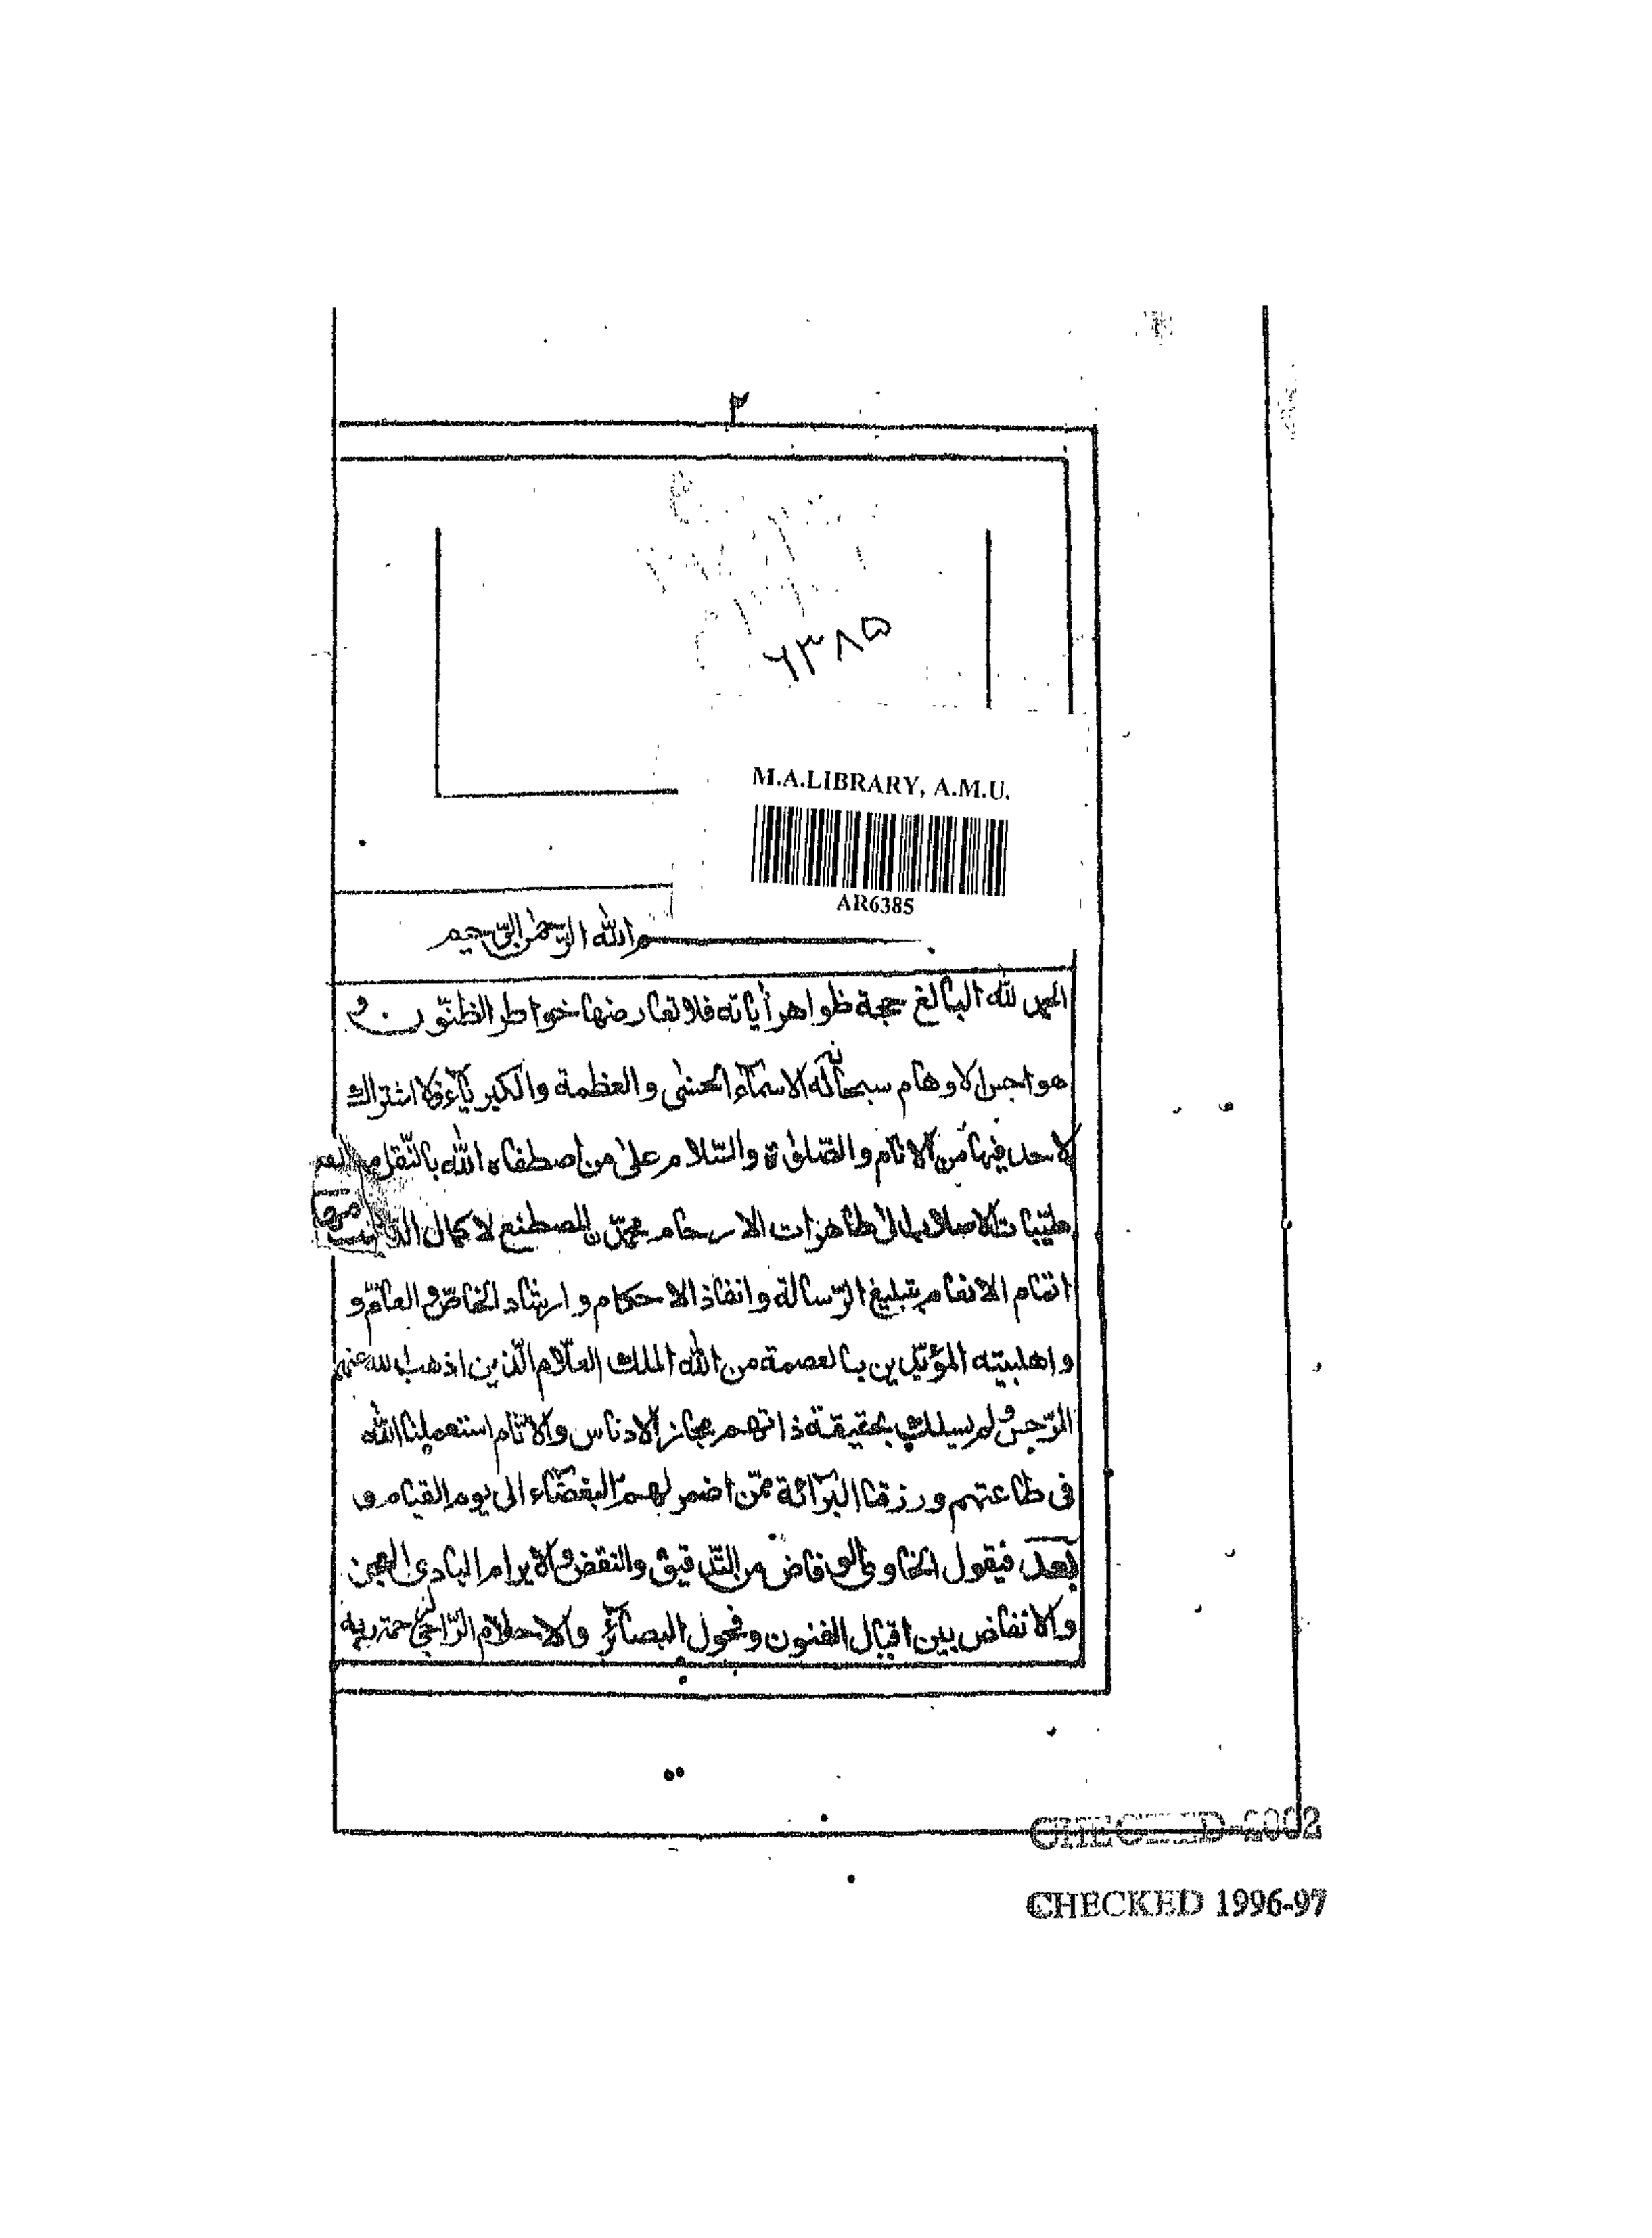 ۲
۶۳۸۵
M.A.LIBRARY, A.M.U.
AR6385
بسم الله الرحمن الرحيم
الحمد لله البالغ حجة ظواهر أياته فلا تعارضها خواطر الظنّون و
هواجس الاوهام سبحانه له الاسمآء الحسنى والعظمة والكبريآء فلا اشتراك
لاحد فيها من الانام والصّلوٰة والسّلام علىٰ من اصطفاه الله بالنّقل من
طيّبات الاصلاب الى طاهرات الارحام محمّد المصطنع لاكمال
اتمام الانعام بتبليغ الرّسالة وانفاذ الاحكام وارشاد الخاصّ والعامّ و
واهلبيته المؤيّدين بالعصمة من الله الملك العلّام الّذين اذهب الله عنهم
الرّجس ولم يسلك بحقيقة ذاتهم مجاز الادناس والاثام استعملنا الله
فى طاعتهم ورزقنا البرآئة ممّن اضمر لهم البغضآء الى يوم القيام و
بعد فيقول الخاوى الوفاض من التّدقيق والنقض والابرام البادى العجز
والانفاض بين اقيال الفنون وفحول البصآئر والاحلام الرّاجى رحمة ربه
CHECKED-2002
CHECKED 1996-97